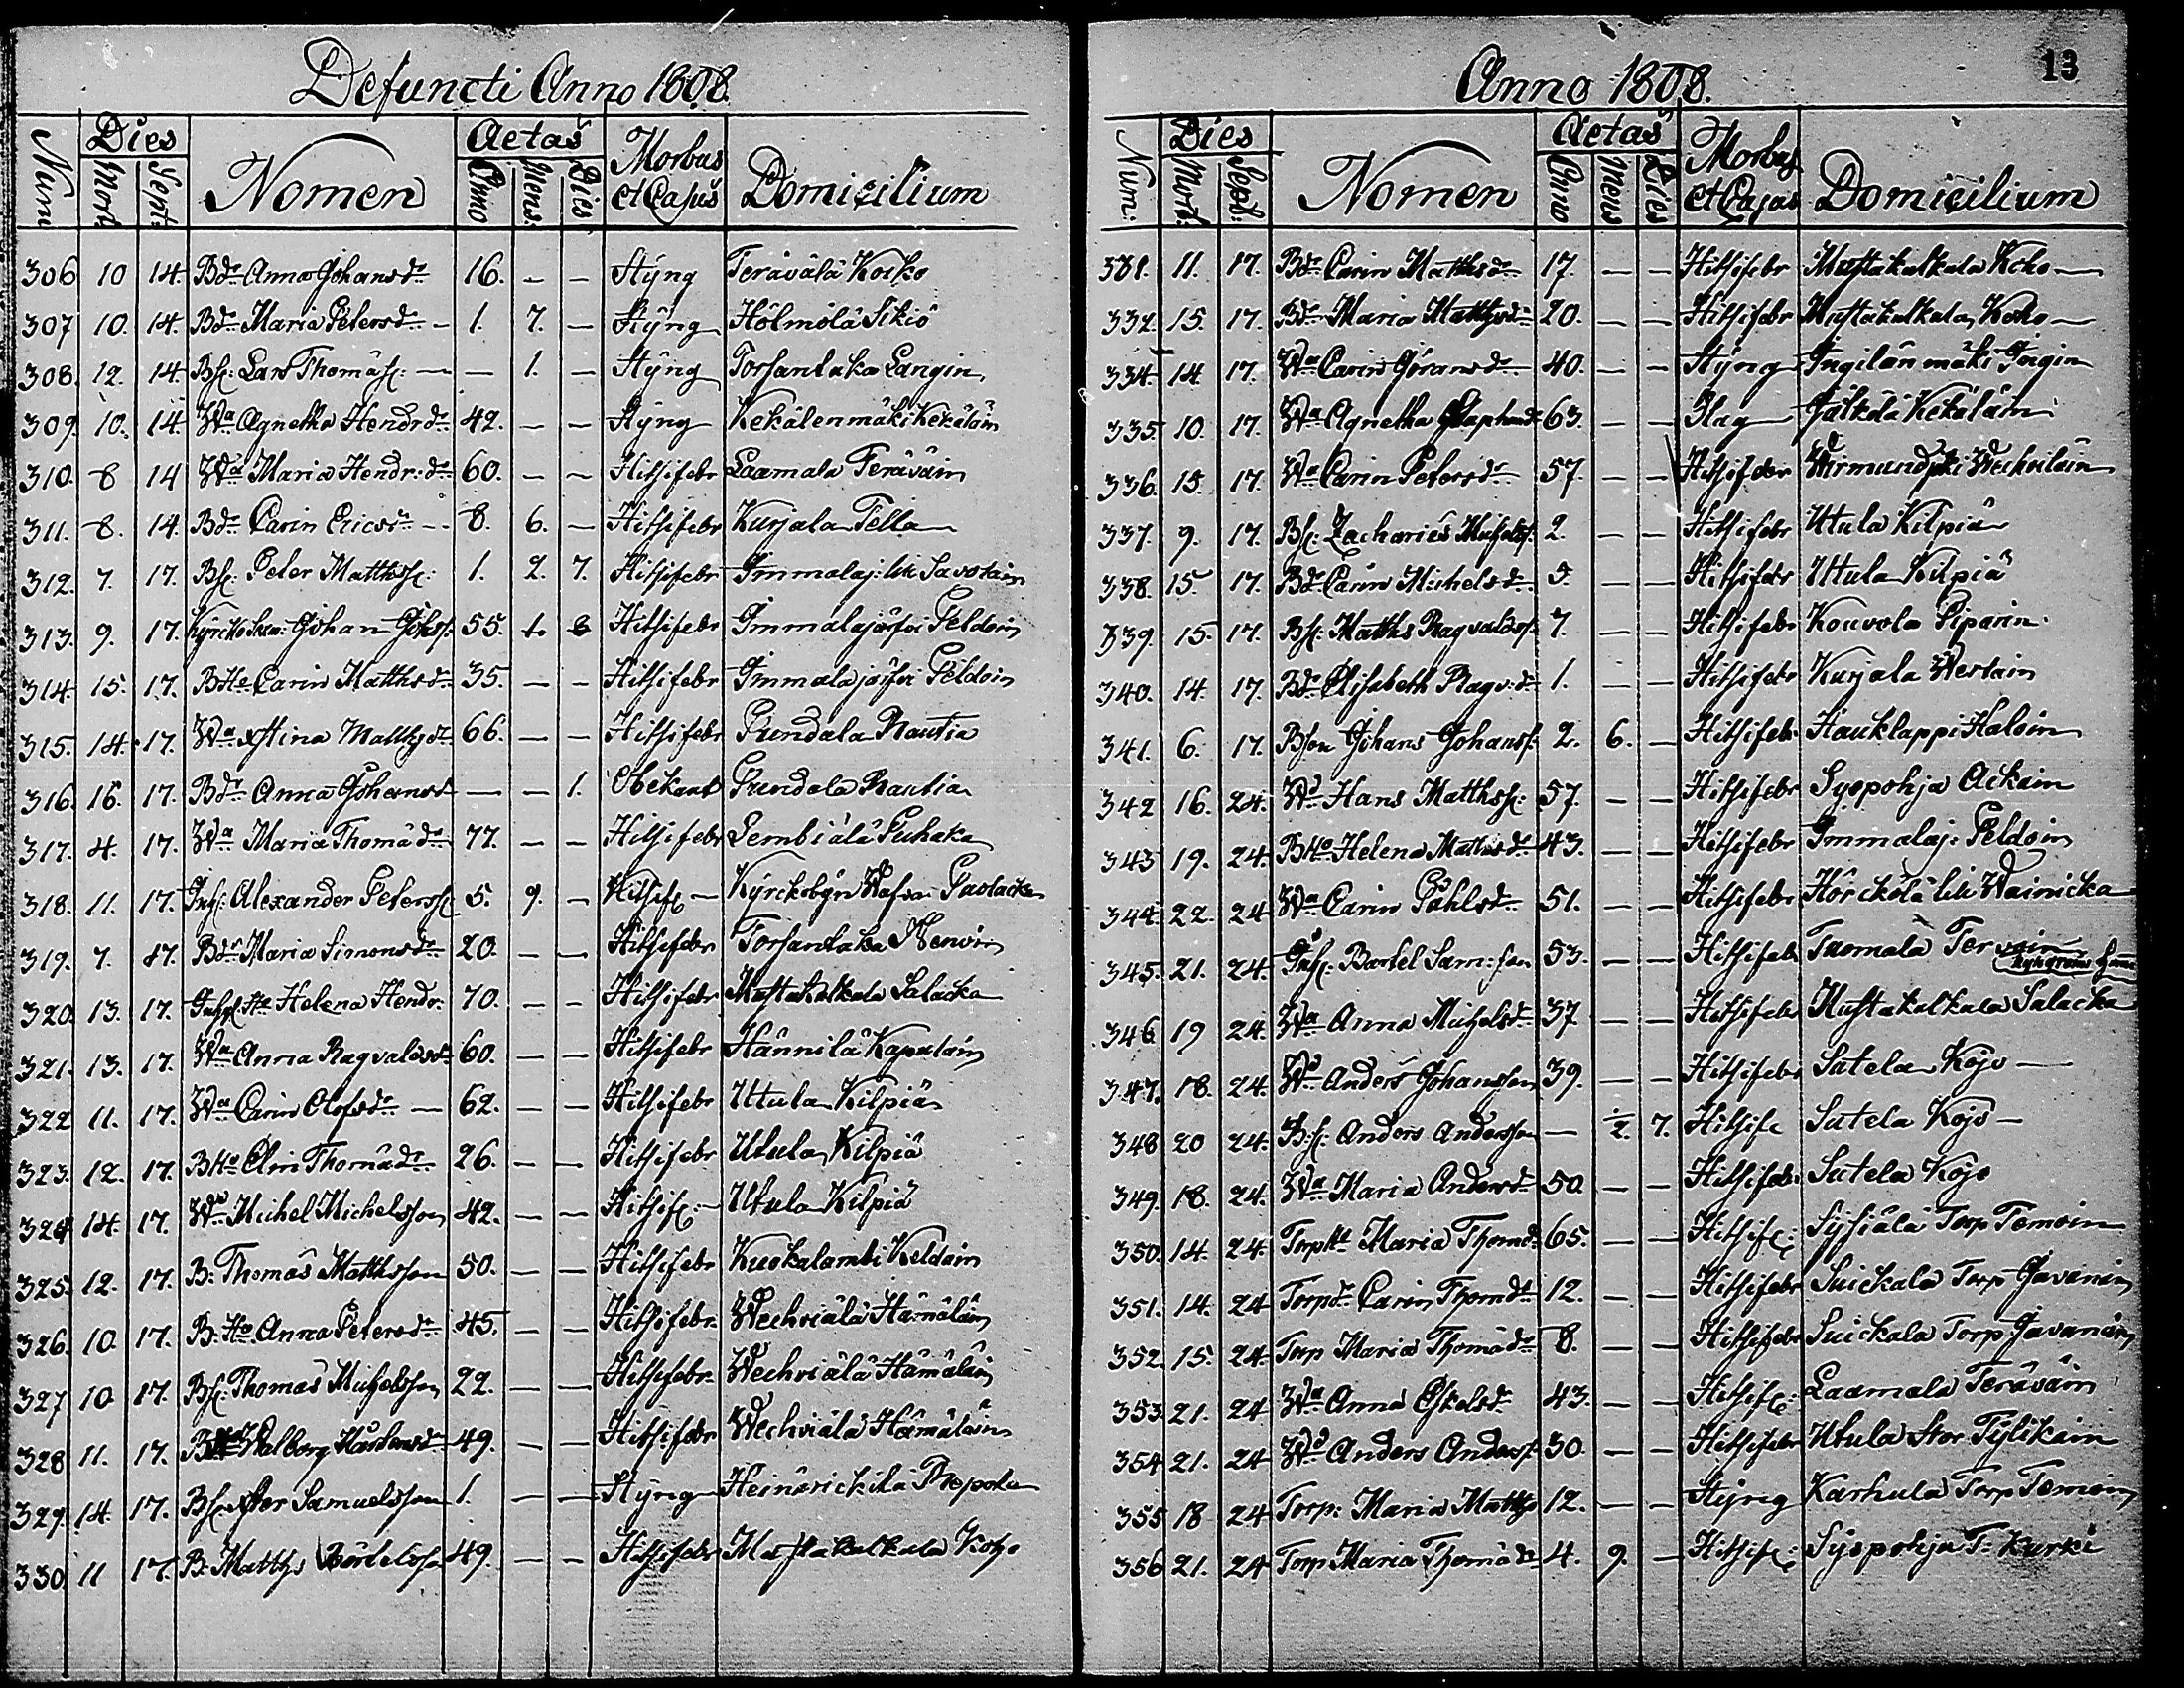 Defuncti Anno 1808.
Num Dies Mort Sept: Nomen Aetas Anno Mens: Dies Morbus et Casus Domicilium
306 10 14. Bdr Anna Johansdr 16. — — Styng Terävälä Koiko
307 10. 14. Bdr Maria Petersdr — 1. 7. — Styng Hölmölä Sikiö
308. 12. 14. Bs: Lars Thomäs: — — 1. — Styng Torsantaka Langin
309. 10. 14. Wa Agnetha Hendrdr 42. — — Styng Kekälenmäki Kekäläin
310. 8 14 Wa Maria Hendr:dr 60. — — Hitsifebr Laamala Teräväin
311. 8. 14. Bdr Carin Ericsdr — 8. 6. — Hitsifebr Kurjala Tella
312. 7. 17. Bs: Peter Matthss: 1. 2. 7. Hitsifebr Immalaj: lilt Savolain
313. 9. 17. Johan Johss: 55. Hitsifebr Immalajärfvi Peldoin
314. 15. 17. BHo Carin Matthsdr 35. — — Hitsifebr Immalajärfvi Peldoin
315. 14. 17. Wa Stina Matthsdr 66. — — Hitsifebr Pundala Rautia
316. 16. 17. Bdr Anna Johansd — — 1. Obekant Pundala Rautia
317. 4. 17. Wa Maria Thomädr 77. — — Hitsifebr Lembiälä Puhaka
318. 11. 17. Inhs: Alexander Peterss 5. 9. — Hitsif: — Kyrckobyn
319. 7. 17. Bdr Maria Simonsdr 20. — — Hitsifebr Torsantaka Henoin
320. 13. 17. Helena Hendr: 70. — — Hitsifebr Mustakalkala Salacka
321. 13. 17. Wa Anna Ragvaldsdr 60. — — Hitsifebr Hännilä Kapulain
322 11. 17. Wa Carin Olofsdr — 62. — — Hitsifebr Utula Kilpiä
323. 12. 17. BHo Elin Thomädr 26. — — Hitsifebr Utula Kilpiä
324 14. 17. Wd Michel Michelsson 42. — — Hitsif: — Utula Kilpiä
325. 12. 17. B: Thomas Matthsson 50. — — Hitsifebr Kuokalambi Keldain
326. 10. 17. B: Ho Anna Petersdr 45. — — Hitsifebr. Wechviälä Hämäläin
327 10. 17. Bs: Thomas Michelsson 22. — — Hitsifebr. Wechviälä Hämäläin
328 11. 17. Walborg 49. — — Hitsifebr Wechviälä Hämäläin
329. 14. 17. Bs: Per Samuelsson 1. — — Styng Heinärickilä Repoka
330 11 17. B: Matths Bertelsson 49. — — Hitsifebr Mustakalkala Koho
Anno 1808.
13
Num: Dies Mort: Sept: Nomen Aetas Anno Mens Dies Morbus et Casus Domicilium
331. 11. 17. Bdr Carin Matthsdr 17. — — Hitsifebr Mustakalkala Koho —
332. 15. 17. Bdr Maria Matthsdr 20. — — Hitsifebr Mustakalkala Koho —
334. 14. 17. Wa Carin Göransdr 40. — — Styng Ingilän mäki Ingin
335. 10. 17. Wa Agnetha Staphansdr 63. — — Slag Jälkälä Kekäläin
336. 15. 17. Wa Carin Petersdr 57. — — Hitsifebr Wechviläin
337. 9. 17. Bs: Zacharies Michelss: 2. — — Hitsifebr Utula Kilpiä
338. 15. 17. Bdr Carin Michelsdr 5. — — Hitsifebr Utula Kilpiä
339. 15. 17. Bs: Matths Ragvaldss: 7. — — Hitsifebr Kouvola Piparin.
340. 14. 17. Bdr Elisabeth Ragv:dr 1. — — Hitsifebr Kurjala Westain
341. 6. 17. Bson Johans Johanss: 2. 6. — Hitsifebr Hauklappi Haloin
342 16. 24. Wd Hans Matthss: 57. — — Hitsifebr Syspohja Ackain
343 19. 24. BHo Helena Mattsdr 43. — — Hitsifebr Immalaj: Peldoin
344. 22. 24 Wa Carin Påhlsdr 51. — — Hitsifebr Hörckölä lilt Wainicka
345. 21. 24. Inhs: Bartel Sam:son 53. — — Hitsifebr Tuomala Tervain
346 19 24. Wa Anna Michelsdr 37 — — Hitsifebr Mustakalkala Salacka
347. 18. 24. Wd Anders Johansson 39. — — Hitsifebr Satela Kojo —
348 20 24. B:s: Anders Andersson — 2. 7. Hitsife Satela Kojo —
349. 18. 24. Wa Maria Andersdr 50 — — Hitsifebr Satela Kojo
350. 14. 24. TorpHo Maria Thomdr 65. — — Hitsif: Sysiälä Torp Temoin
351. 14. 24 Torpdr Carin Thomdr 12. — — Hitsifebr Suickala Torp Javanain
352. 15. 24. Torp Maria Thomädr 8. — — Hitsifebr Suickala Torp Javanain
353. 21. 24 Wa Anna Eskelsdr 43. — — Hitsif: Laamala Teräväin
354 21. 24 Wd Anders Anderss: 30. — — Hitsifebr Utula Stor Tylikäin
355 18 24 Torp: Maria Matths 12. — — Styng Karhula Torp Temoin
356 21. 24 Torp Maria Thomädr 4. 9. — Hitsif: Syspohja T: Kurki